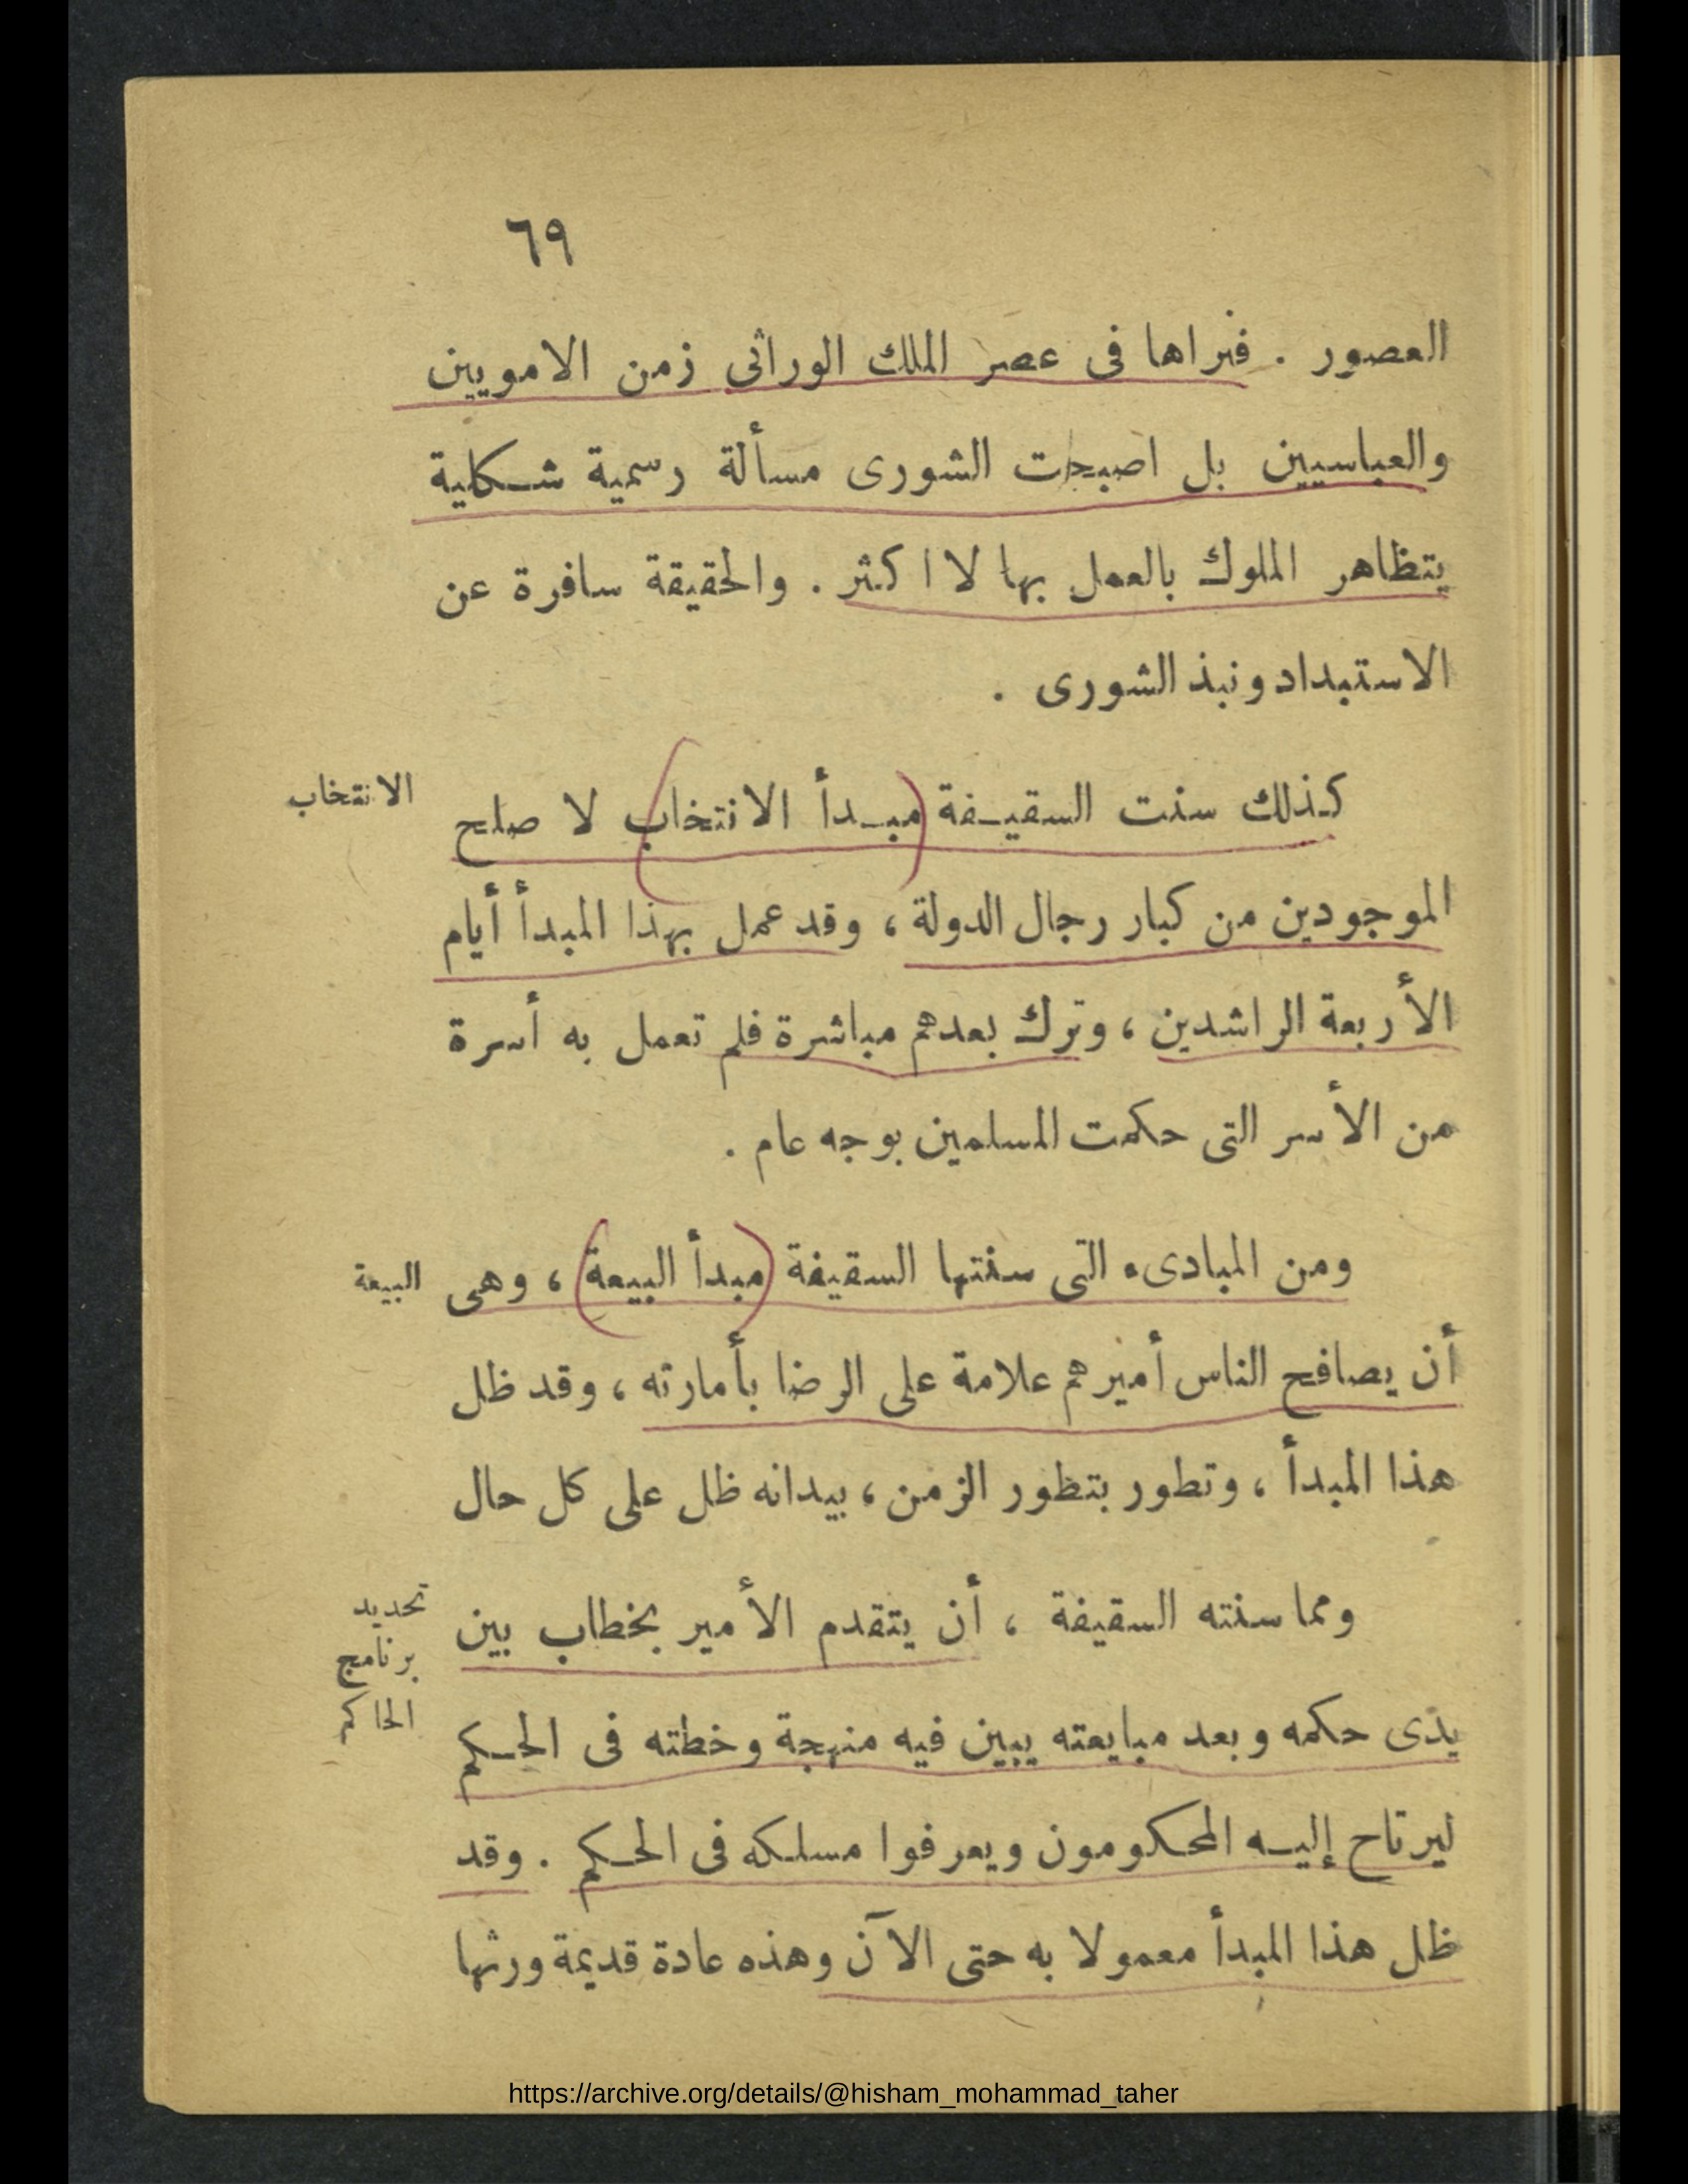 ٦٩
العصور . فنراها فى عصر الملك الوراثى زمن الامويين
والعباسيين بل اصبحت الشورى مسألة رسمية شكلية
يتظاهر الملوك بالعمل بها لا اكثر . والحقيقة سافرة عن
الاستبداد ونبذ الشورى .
الانتخاب
كذلك سنت السقيفة (مبدأ الانتخاب) لا صلح
الموجودين من كبار رجال الدولة ، وقد عمل بهذا المبدأ أيام
الأربعة الراشدين ، وترك بعدهم مباشرة فلم تعمل به أسرة
من الأسر التى حكمت المسلمين بوجه عام .
البيعة
ومن المبادىء التى سنتها السقيفة (مبدأ البيعة) ، وهى
أن يصافح الناس أميرهم علامة على الرضا بأمارته ، وقد ظل
هذا المبدأ ، وتطور بتظور الزمن ، بيدانه ظل على كل حال
تحديد
برنامج
الحاكم
ومما سنته السقيفة ، أن يتقدم الأمير بخطاب بين
يدى حكمه وبعد مبايعته يبين فيه منهجة وخطته فى الحكم
ليرتاح إليه المحكومون ويعرفوا مسلكه فى الحكم . وقد
ظل هذا المبدأ معمولا به حتى الآن وهذه عادة قديمة ورثها
https://archive.org/details/@hisham_mohammad_taher